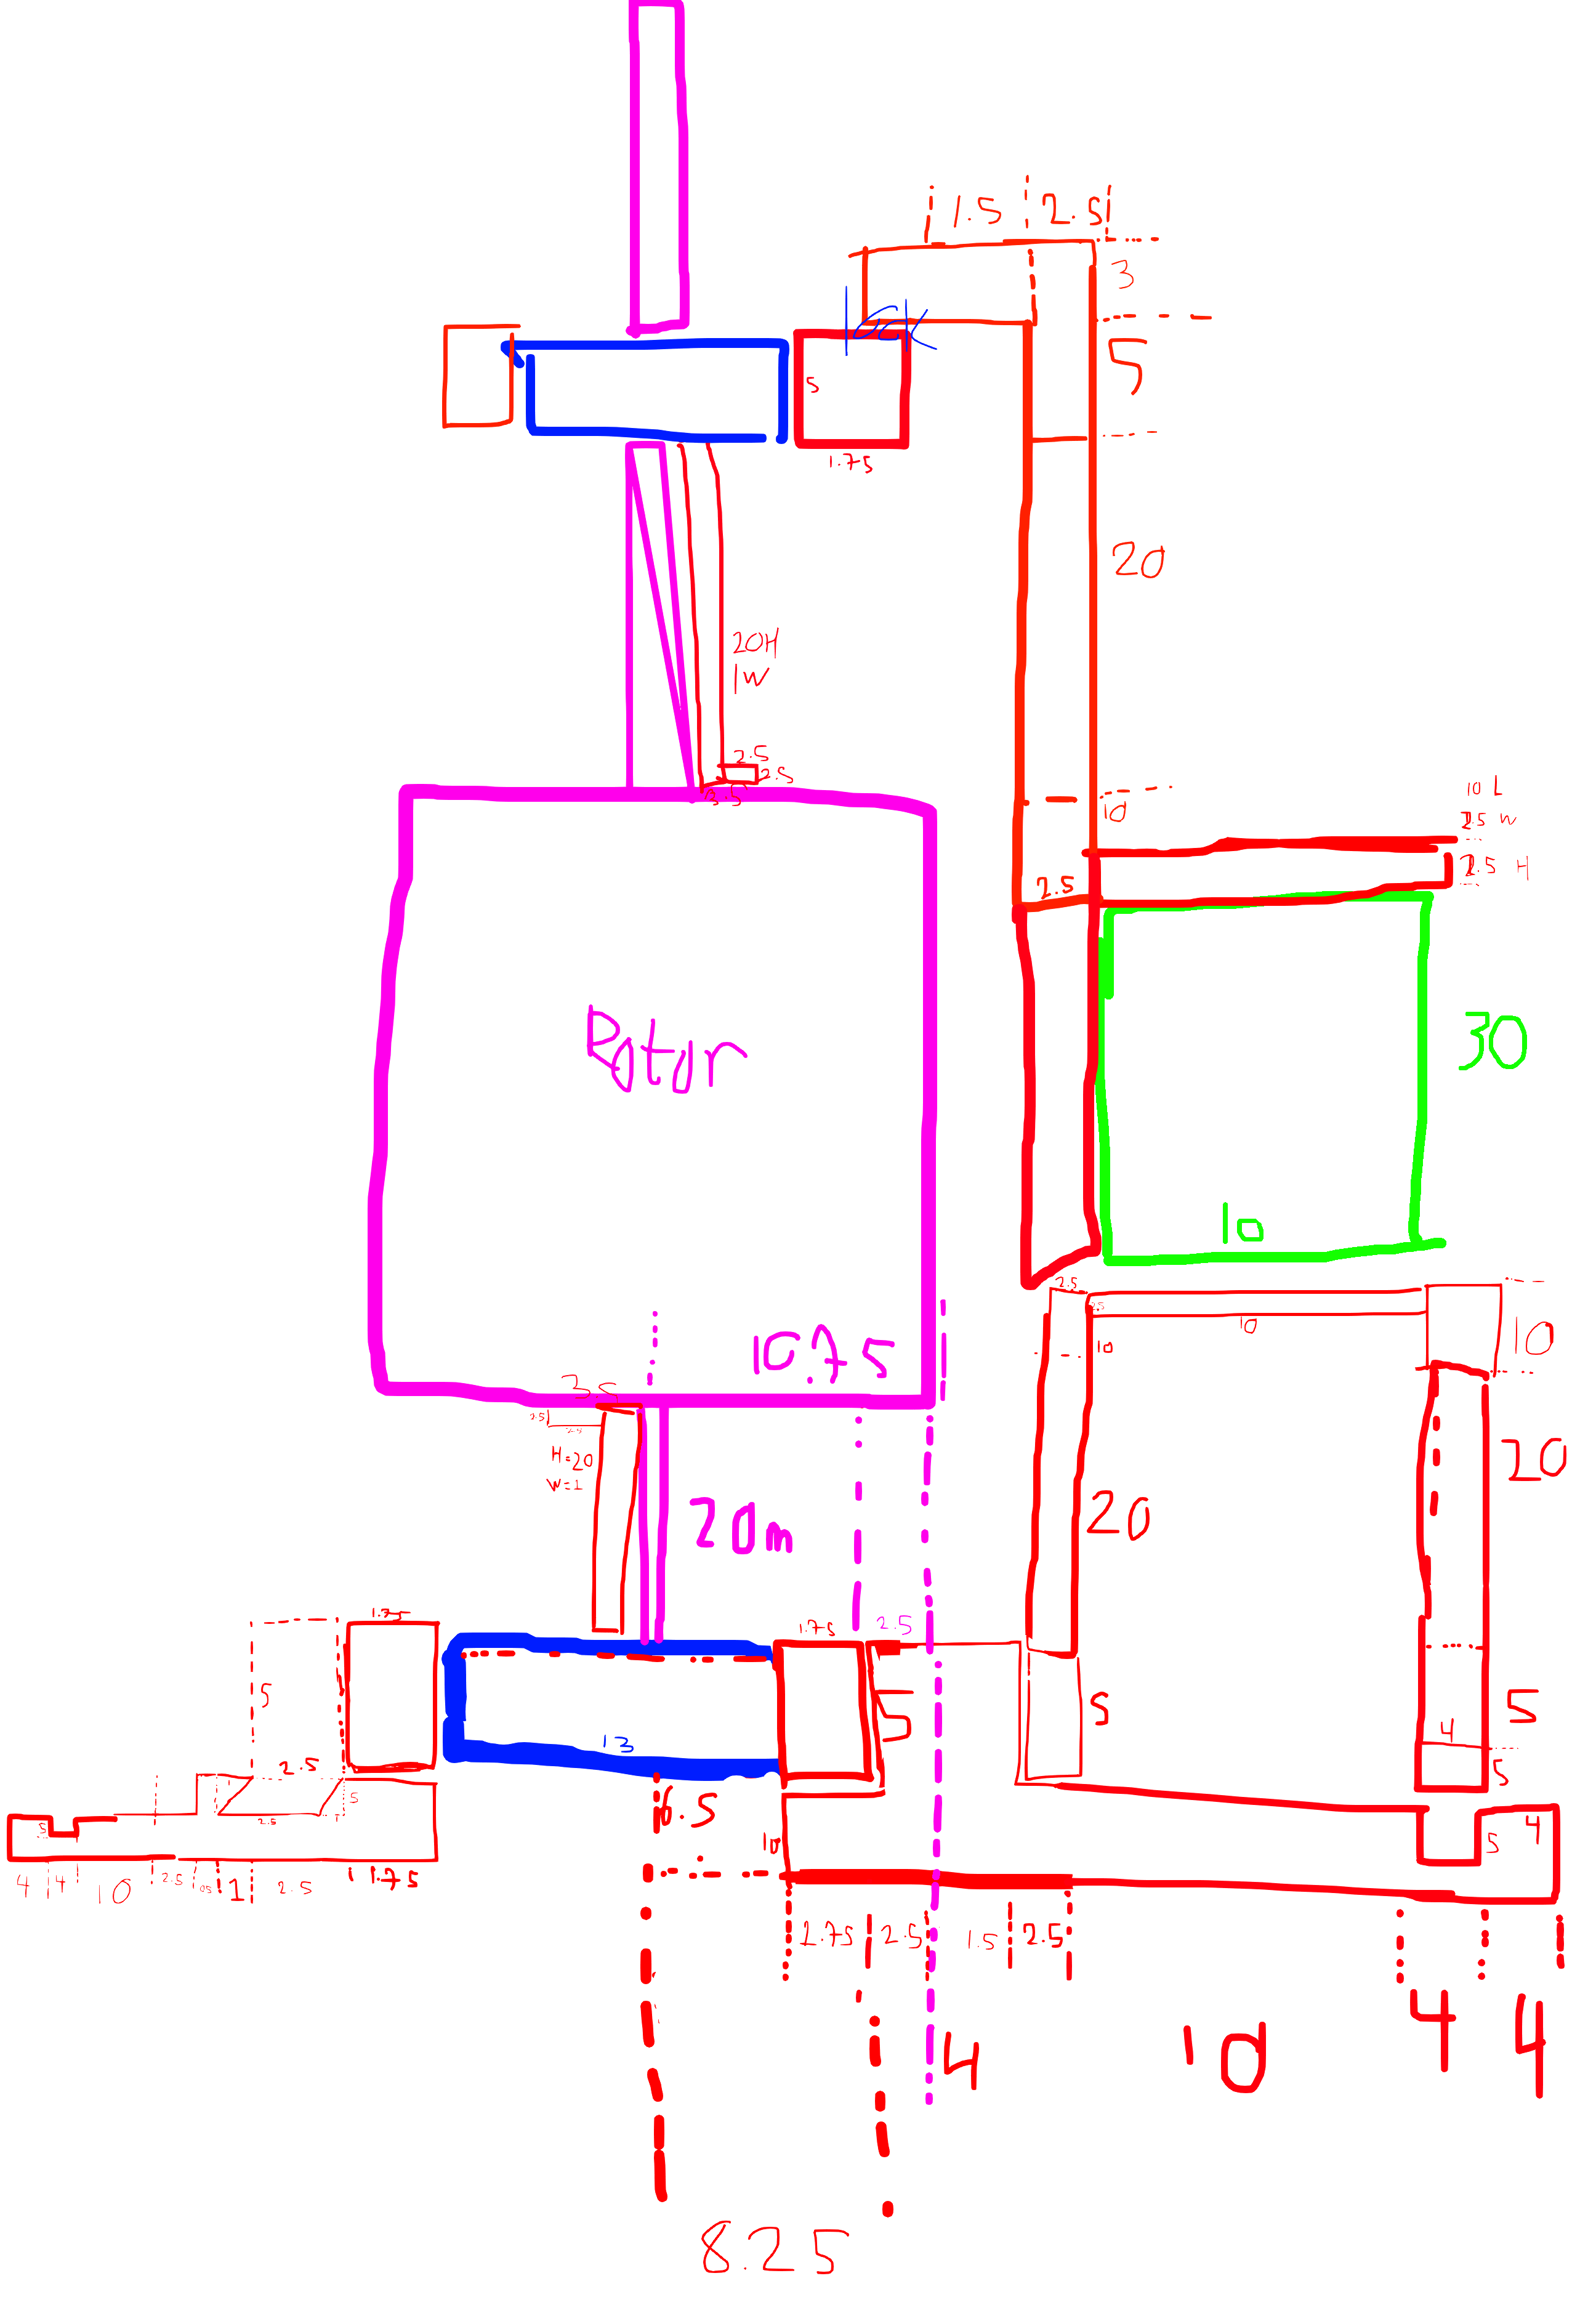 1.5
2.5
3
lock
5
5
1.75
20
20H
1W
2.5
2.5
3.5
10
10 L
2.5 W
2.5 H
2.5
Rotor
30
10
10.75
2.5
2.5
10
10
10
3.5
2.5
2.5
H=20
W=1
20m
20
20
1.75
1.75
2.5
5
5
5
5
13
4
5
2.5
5
2.5
5
6.5
10
5
4
4
4
10
2.5
.05
1
2.5
1.75
2.75
2.5
1.5
2.5
4
10
4
4
8.25